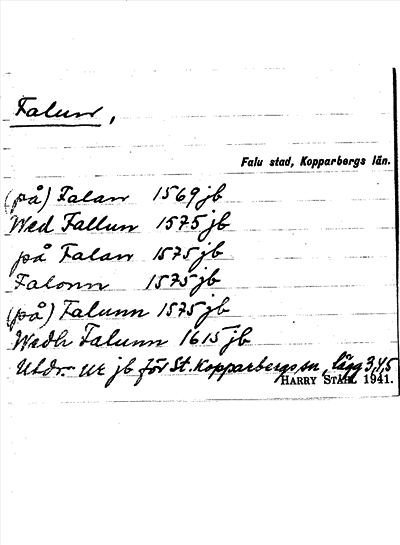 Falun,
Falu stad, Kopparbergs län.
(på) Falan 1569 jb
Wed Fallun 1575 jb
på Falan 1575 jb
Falonn 1575 jb
(på) Falunn 1575 jb
Wedh Falunn 1615 jb
Utdr. ur jb för St. Kopparbergs sn, lägg 3,4,5
HARRY STÅHL 1941.